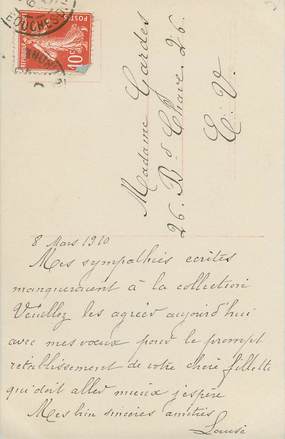 BOUCHES
10c
Madame Gardes
26. Bd Chave. 26.
E. V.
8 Mars 1910
Mes sympathies écrites
manqueraient à la collection
Veuillez les agréer aujourd'hui
avec mes vœux pour le prompt
rétablissement de votre chère fillette
qui doit aller mieux j'espère
Mes bien sincères amitiés
Louise